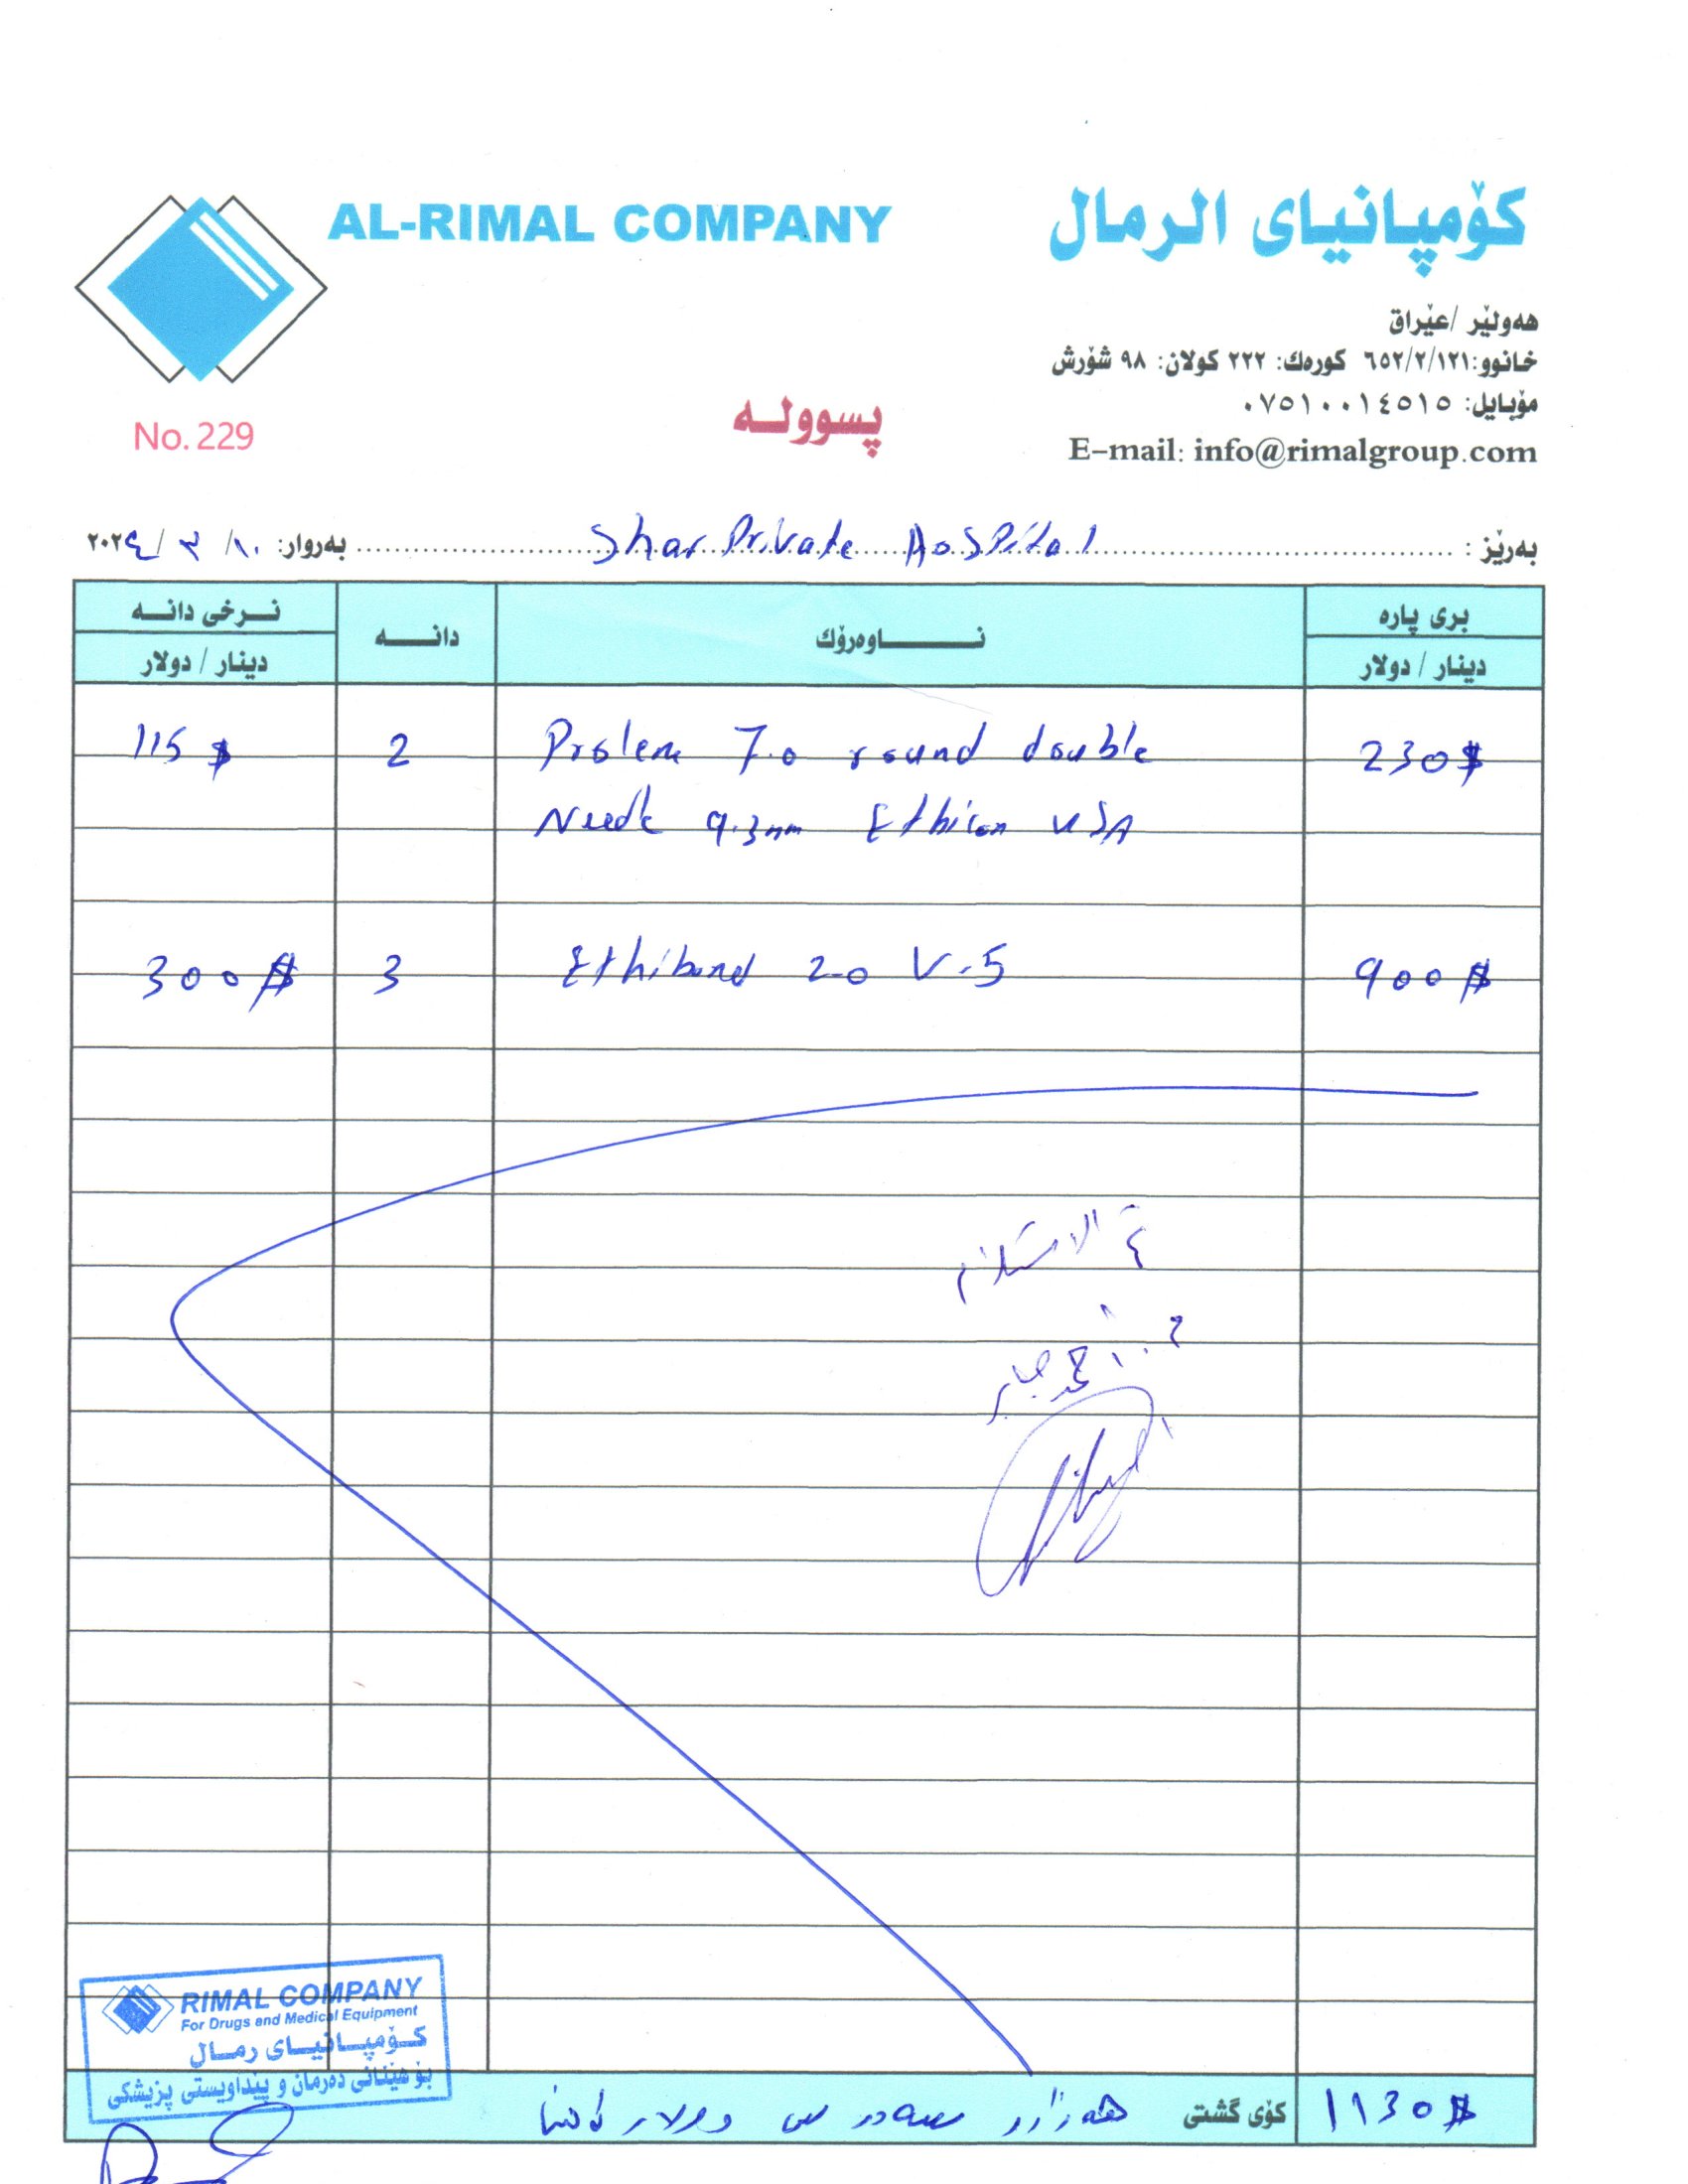 AL-RIMAL COMPANY
کۆمپانیای الرمال
هەولێر /عێراق
خانوو:٦٥٢/٢/١٢١ کورەك: ٢٢٢ کولان: ٩٨ شۆرش
مۆبایل: ٠٧٥١٠٠١٤٥١٥
E-mail: info@rimalgroup.com
No. 229
پسوولە
بەرێز : Shar Private Hospital بەروار: ١٠/ ٣ /٢٠٢٤
بری پارە ناوەرۆك دانە نرخی دانە
دینار / دولار دینار / دولار
115 $ 2 Prolene 7.0 round double 230 $
Needle 9.3mm Ethicon USA
300 $ 3 Ethibond 2-0 V-5 900 $
تم الاستلام
م. أحمد جابر
RIMAL COMPANY
For Drugs and Medical Equipment
کۆمپانیای رمال
بۆ هێنانی دەرمان و پێداویستی پزیشکی
1130 $ کۆی گشتی هەزار و سەد و سی دولار تەنها